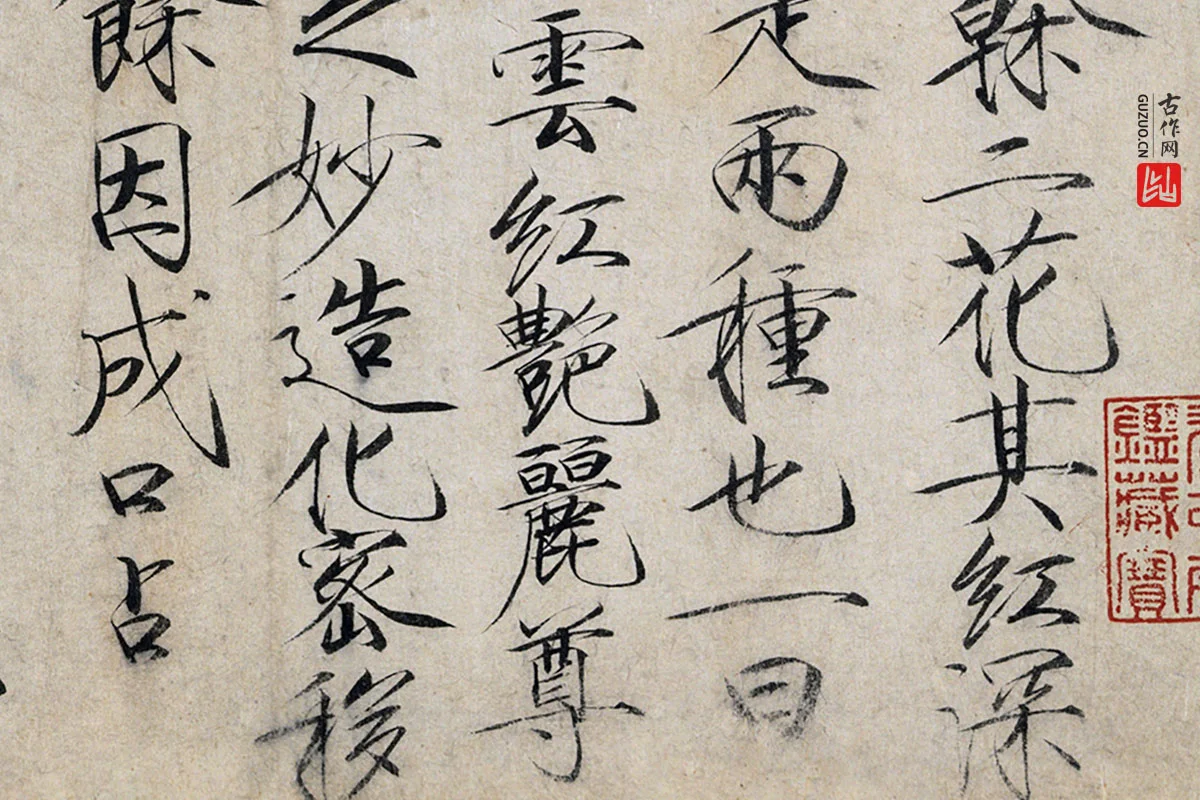 榦二花其紅深
是兩種也一曰
雲紅艷麗尊
之妙造化密移
餘因成口占
鑑藏寶
古作网
GUZUO.CN